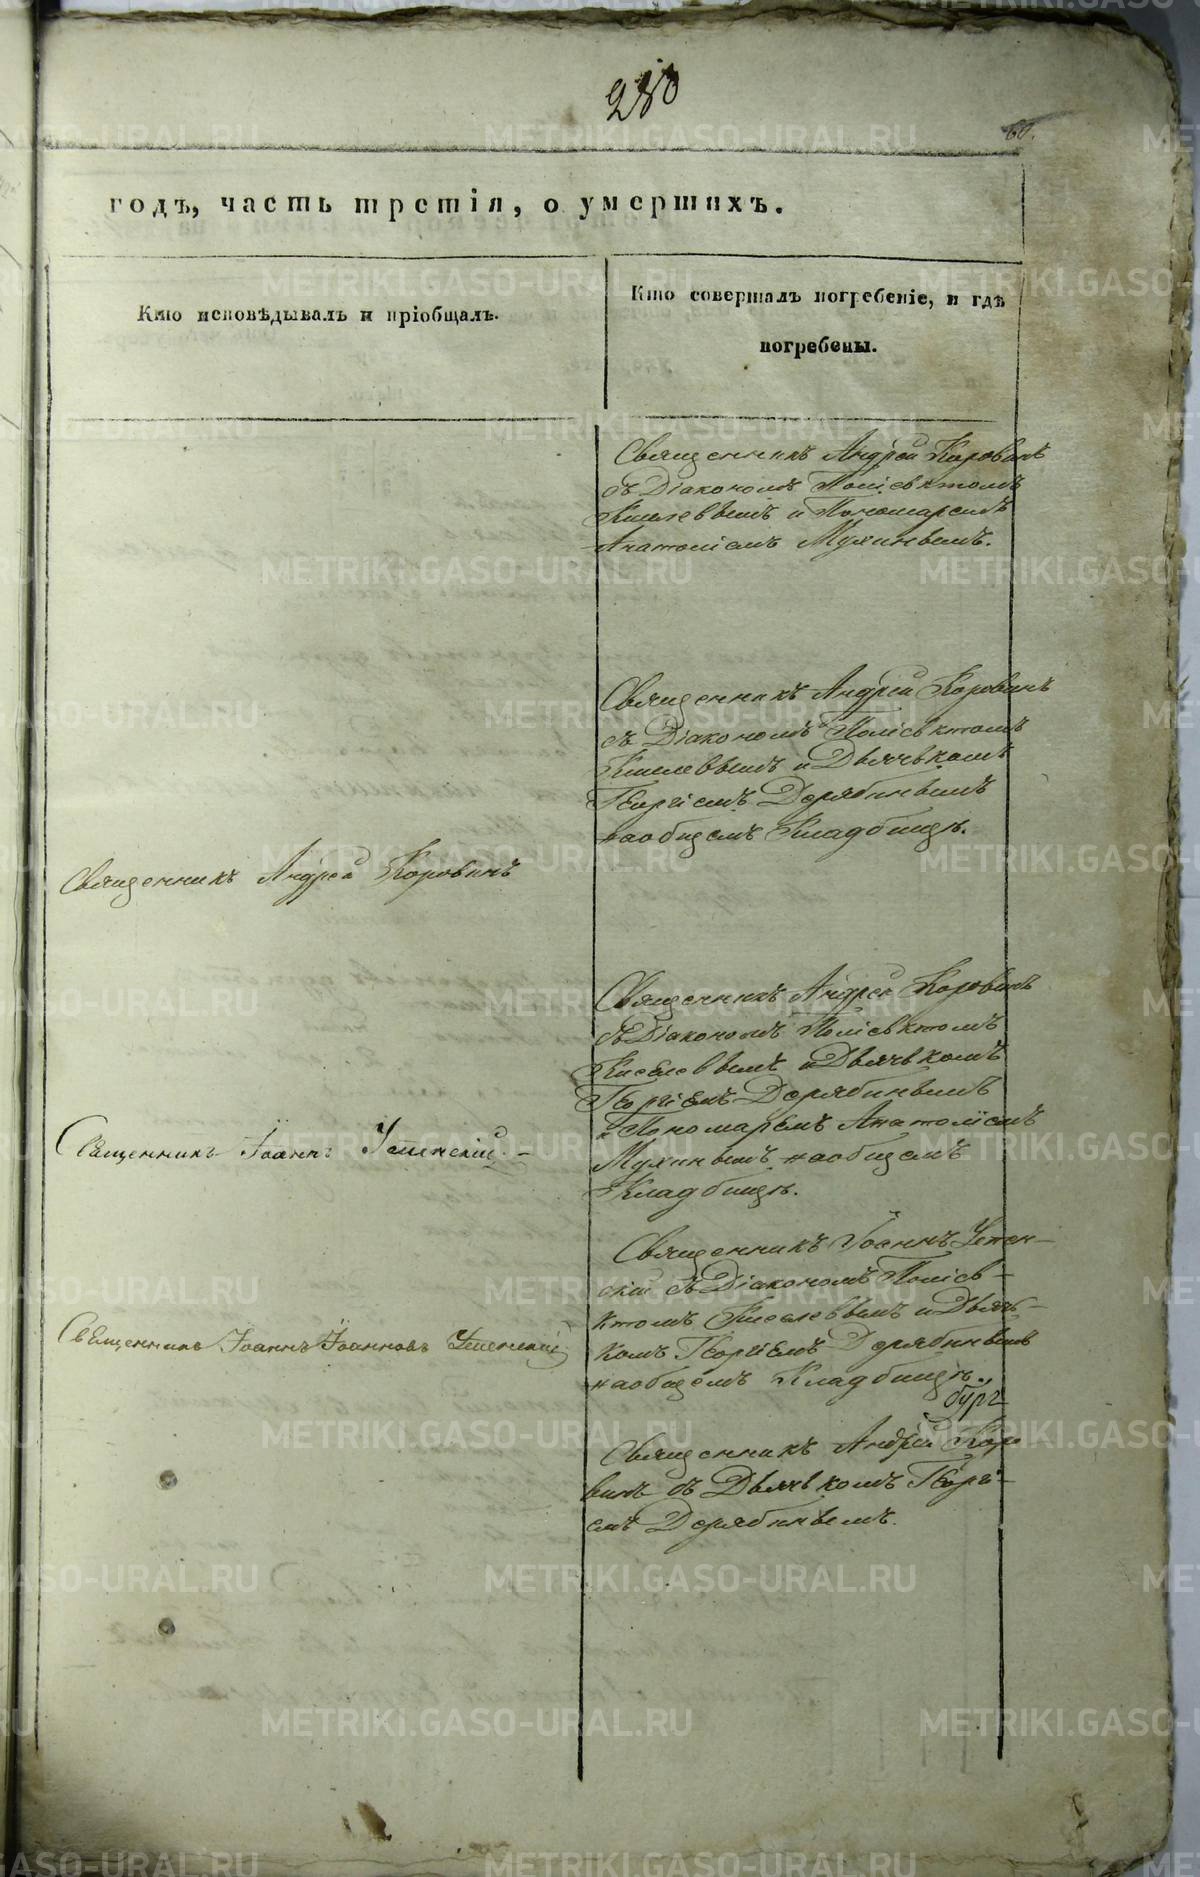 280
60.
годъ, часть третія, о умершихъ.
Кто исповѣдывалъ и пріобщалъ.
Кто совершалъ погребеніе, и гдѣ
погребены.
Священникъ Андрей Коровинъ
съ Діакономъ Поліевктомъ
Киселевымъ и Пономаремъ
Анатоліемъ Мухинымъ.
Священникъ Андрей Коровинъ
съ Діакономъ Поліевктомъ
Киселевымъ и Дьячькомъ
Георгіемъ Дерябинымъ
на общемъ Кладбищѣ.
Священникъ Андрей Коровинъ
Священникъ Андрей Коровинъ
съ Діакономъ Поліевктомъ
Киселевымъ и Дьячькомъ
Георгіемъ Дерябинымъ
и Пономаремъ Анатоліемъ
Мухинымъ на общемъ
Кладбищѣ.
Священникъ Іоаннъ Успенскій.
Священникъ Іоаннъ Успен-
скій съ Діакономъ Поліев-
ктомъ Киселевымъ и Дьячь-
комъ Георгіемъ Дерябинымъ
на общемъ Кладбищѣ.
Священникъ Іоаннъ Іоанновъ Успенскій
Священникъ Андрей Коро-
винъ съ Дьячькомъ Георгі-
емъ Дерябинымъ.
METRIKI.GASO-URAL.RU